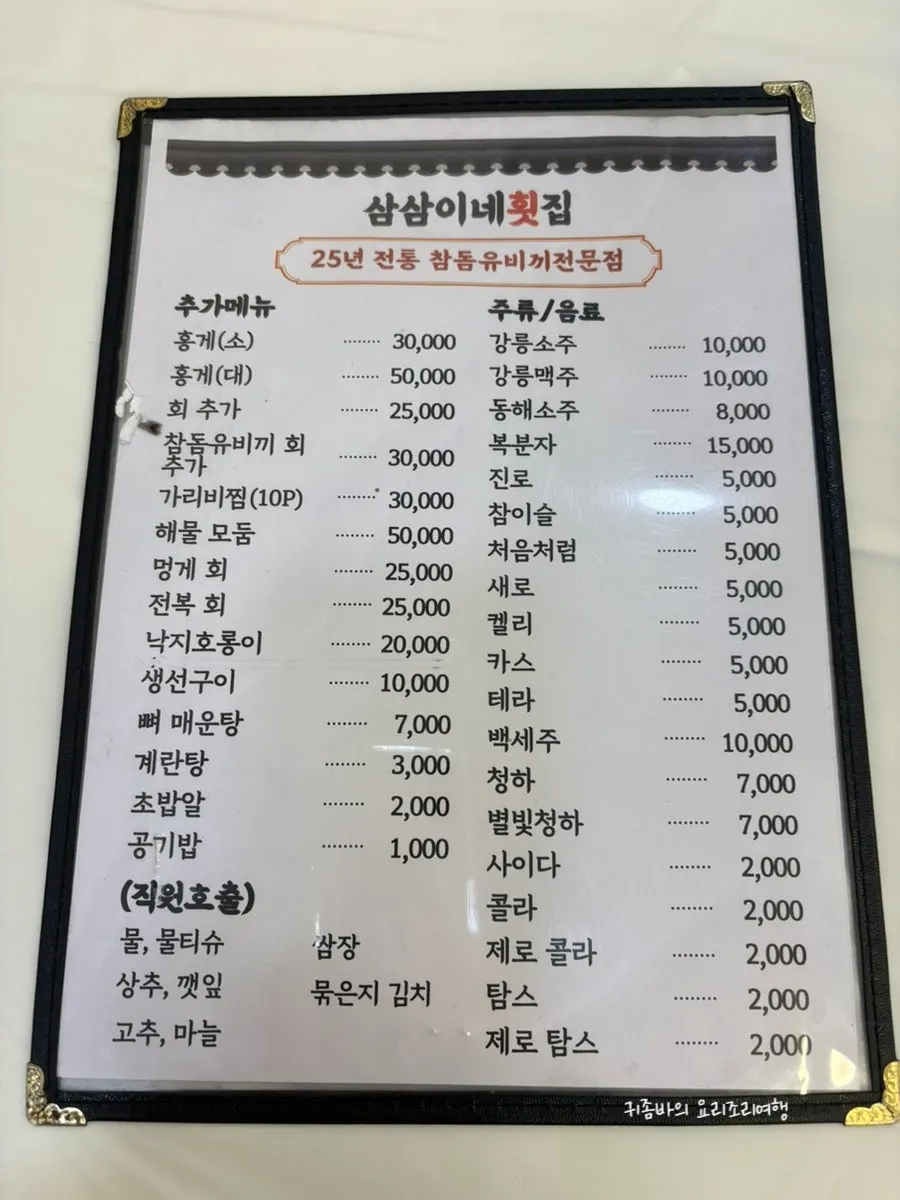 삼삼이네횟집
25년 전통 참돔유비끼전문점
추가메뉴
홍게(소) ........ 30,000
홍게(대) ........ 50,000
회 추가 ........ 25,000
참돔유비끼 회
추가 ........ 30,000
가리비찜(10P) ........ 30,000
해물 모둠 ........ 50,000
멍게 회 ........ 25,000
전복 회 ........ 25,000
낙지호롱이 ........ 20,000
생선구이 ........ 10,000
뼈 매운탕 ........ 7,000
계란탕 ........ 3,000
초밥알 ........ 2,000
공기밥 ........ 1,000
(직원호출)
물, 물티슈 쌈장
상추, 깻잎 묶은지 김치
고추, 마늘
주류/음료
강릉소주 ........ 10,000
강릉맥주 ........ 10,000
동해소주 ........ 8,000
복분자 ........ 15,000
진로 ........ 5,000
참이슬 ........ 5,000
처음처럼 ........ 5,000
새로 ........ 5,000
켈리 ........ 5,000
카스 ........ 5,000
테라 ........ 5,000
백세주 ........ 10,000
청하 ........ 7,000
별빛청하 ........ 7,000
사이다 ........ 2,000
콜라 ........ 2,000
제로 콜라 ........ 2,000
탐스 ........ 2,000
제로 탐스 ........ 2,000
귀좀바의 요리조리여행